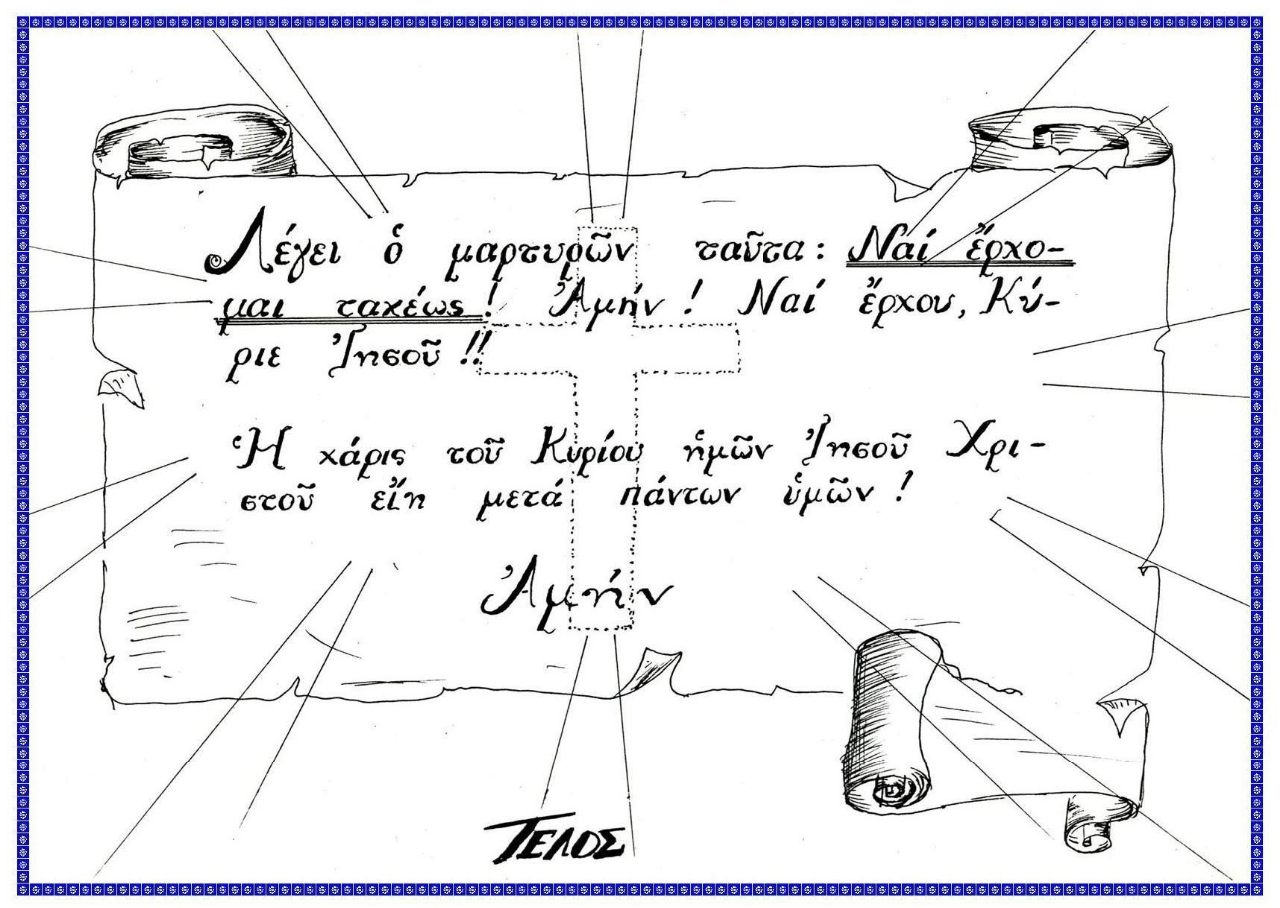 Λέγει ὁ μαρτυρῶν ταῦτα: Ναί ἔρχο-
μαι ταχέως! Ἀμήν! Ναί ἔρχου, Κύ-
ριε Ἰησοῦ!!
Ἡ χάρις τοῦ Κυρίου ἡμῶν Ἰησοῦ Χρι-
στοῦ εἴη μετά πάντων ὑμῶν!
Ἀμήν
ΤΕΛΟΣ